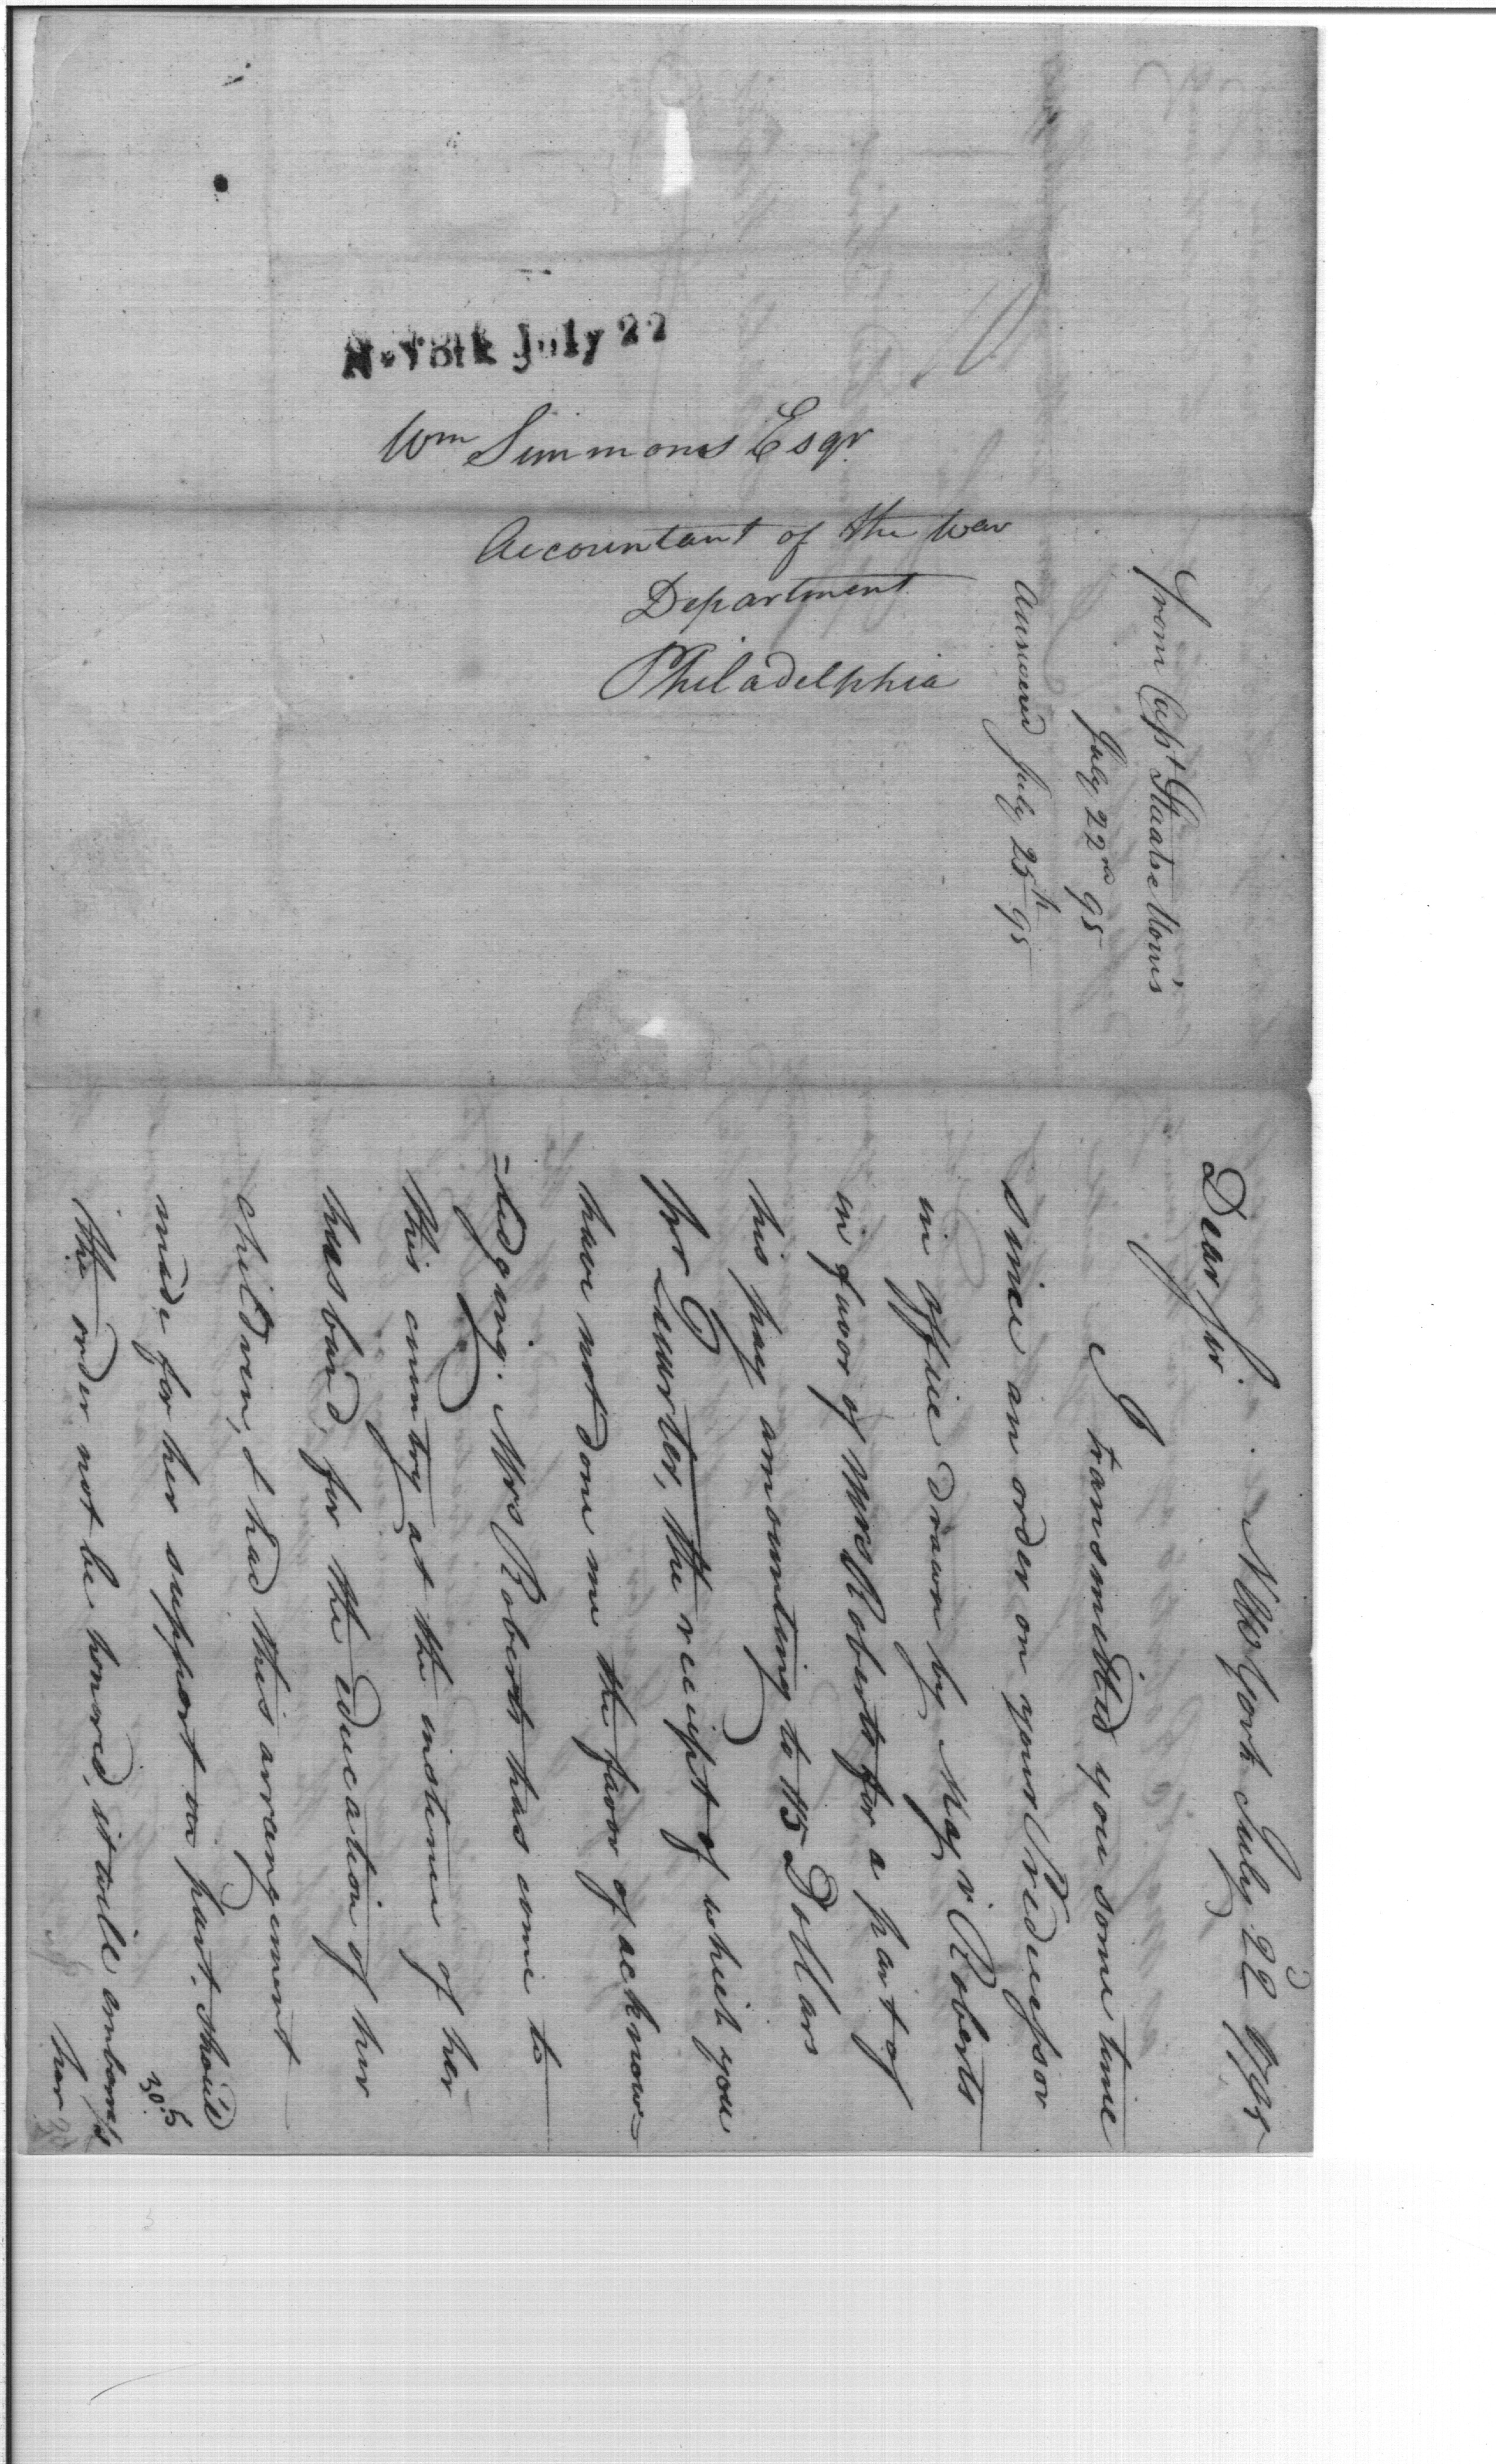 N·York July 22
Wm Simmons Esqr.
Accountant of the War
Department
Philadelphia
from Capt Staats Morris
July 22nd 95
Answered July 25th 95
New York July 22d 1795
Dear Sir.
I transmitted you some time
since an order on your Predecessor
in office drawn by Majr Roberts
in favor of Mrs Roberts for a part of
his pay amounting to 115 Dollars
for Quarter, the receipt of which you
have not done me the favor of acknow=
=ledging. Mrs Roberts has come to
this country at the instance of her
husband, for the education of her
children, & had this arrangement
made for her support in part. Shou'd
the order not be honored, it will embarrass
her